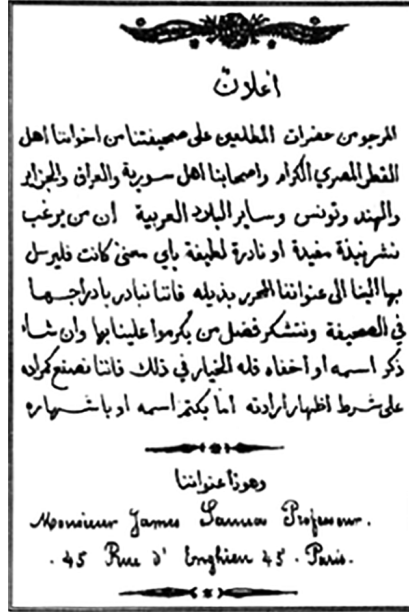 اعلان
المرجو من حضرات المطلعين على صحيفتنا من اخواننا اهل
القطر المصري الكرام واصحابنا اهل سورية والعراق والجزاير
والهند وتونس وساير البلاد العربية ان من يرغب
نشر نبذة مفيدة او نادرة لطيفة باي معنى كانت فليرسل
بها الينا الى عنواننا المحرر بذيله فاننا نبادر بادراجها
في الصحيفة ونتشكر فضل من يكرموا علينا بها وان شاء
ذكر اسمه او أخفاه فله الخيار في ذلك فاننا نصنع كمراده
على شرط اظهار ارادته أما بكتم اسمه او باشهاره
وهوذا عنواننا
Monsieur James Sanua Professeur.
. 45 Rue d' Enghien 45 . Paris.